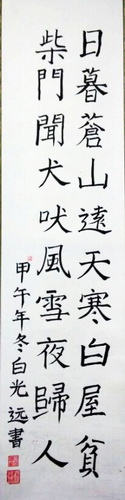 日暮蒼山遠天寒白屋貧
柴門聞犬吠風雪夜歸人
甲午年冬白光远書